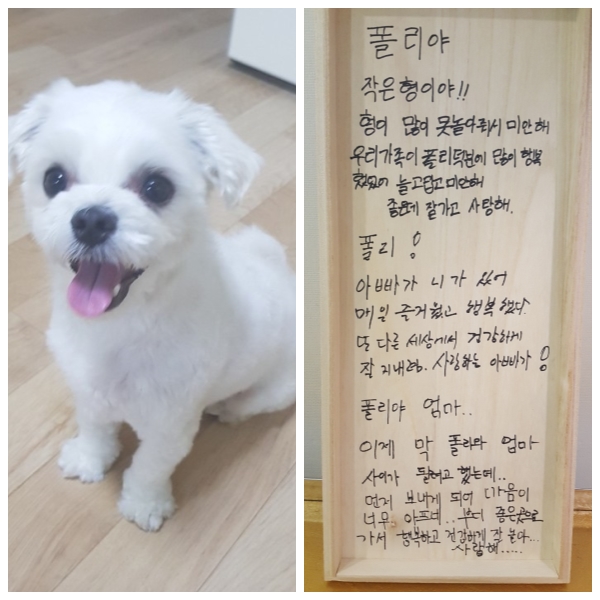 폴리야
작은형이야!!
형이 많이 못놀아줘서 미안해
우리가족이 폴리덕분에 많이 행복
했었어 늘고맙고미안해
좋은데 잘가고 사랑해.
폴리!
아빠가 니가 있어
매일 즐거웠고 행복했다.
또 다른 세상에서 건강하게
잘 지내렴. 사랑하는 아빠가!
폴리야 엄마..
이제 막 폴리와 엄마
사이가 들려고 했는데..
먼저 보내게 되어 마음이
너무 아프네.. 부디 좋은곳으로
가서 행복하고 건강하게 잘 놀아...
사랑해.....